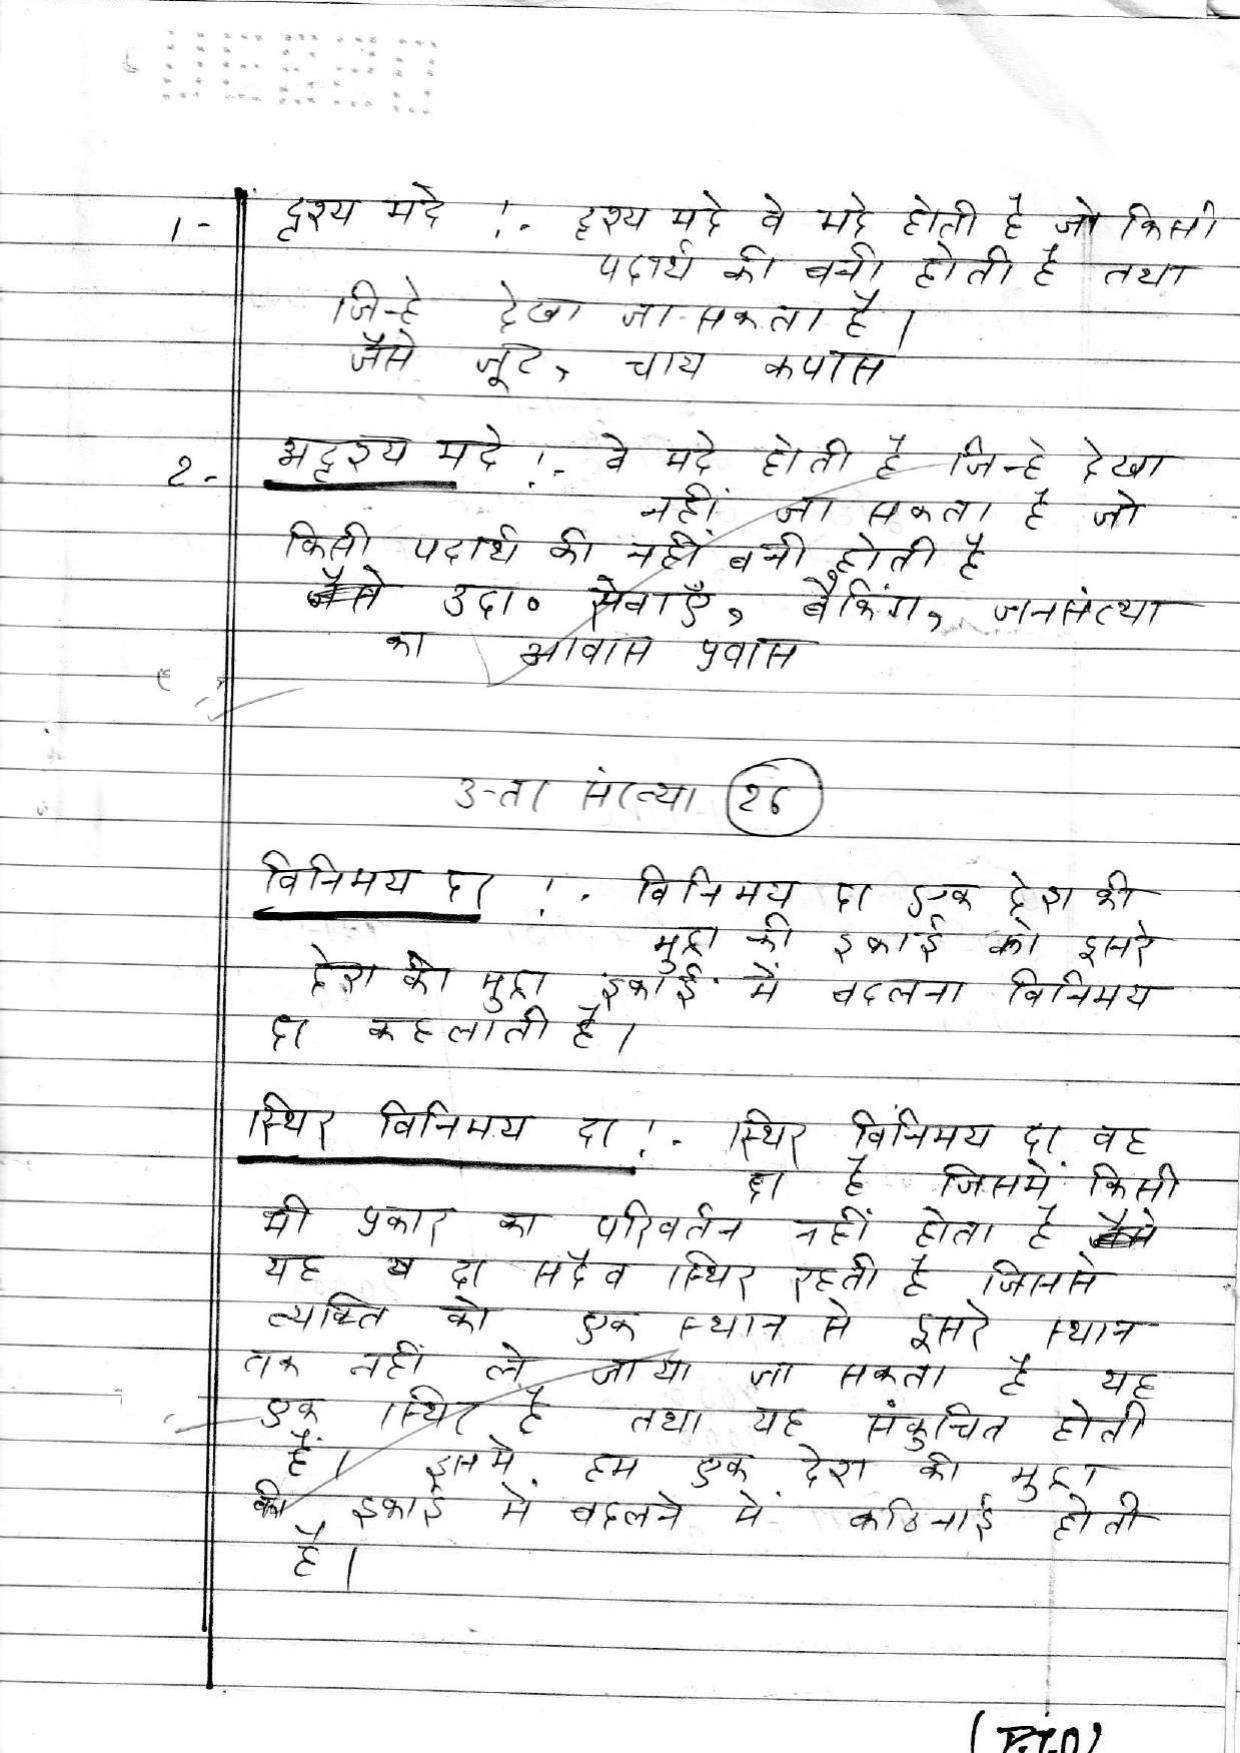 1- दृश्य मदे :- दृश्य मदे वे मदे होती है जो किसी
पदार्थ की बनी होती है तथा
जिन्हे देखा जा सकता है।
जैसे जूट, चाय कपास
2- अदृश्य मदे :- वे मदे होती है जिन्हे देखा
नहीं जा सकता है जो
किसी पदार्थ की नहीं बनी होती है
जैसे उदा० सेवाएँ, बैकिंग, जनसंख्या
का आवास प्रवास
उत्तर संख्या 26
विनिमय दर :- विनिमय दर एक देश की
मुद्रा की इकाई को दूसरे
देश की मुद्रा इकाई में बदलना विनिमय
दर कहलाती है।
स्थिर विनिमय दर :- स्थिर विनिमय दर वह
दर है जिसमें किसी
भी प्रकार का परिवर्तन नहीं होता है जैसे
यह दर सदैव स्थिर रहती है जिससे
व्यक्ति को एक स्थान से दूसरे स्थान
तक नहीं ले जाया जा सकता है यह
एक स्थिर है तथा यह संकुचित होती
हैं। इसमे हम एक देश की मुद्रा
की इकाई में बदलने में कठिनाई होती
है।
(P.T.O)